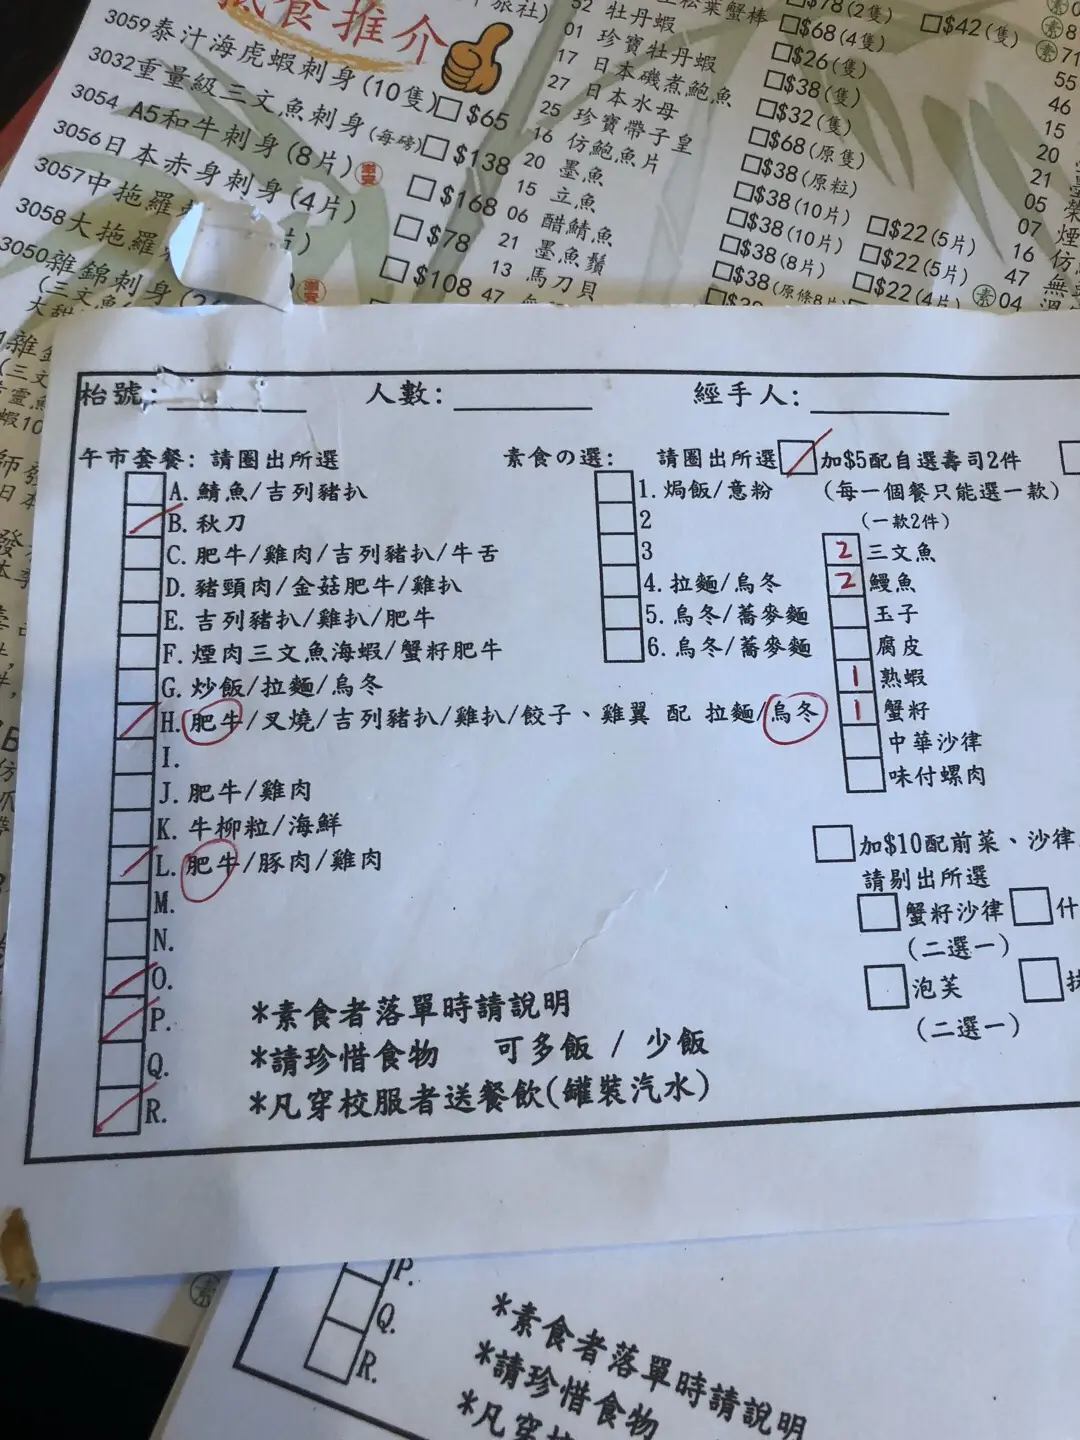 抵食推介
旅社)
3059泰汁海虎蝦刺身(10隻)□ $65
3032重量級三文魚刺身(每磅)□ $138
3054 A5和牛刺身(8片) □ $168
3056日本赤身刺身(4片) □ $78
3057中拖羅 □ $108
3058大拖羅
3050雜錦刺身
(三文魚
52 牡丹蝦
01 珍寶牡丹蝦
17 日本磯煮鮑魚
27 日本水母
25 珍寶帶子皇
16 仿鮑魚片
20 墨魚
15 立魚
06 醋鯖魚
21 墨魚鬚
13 馬刀貝
47
松葉蟹棒
□$78(2隻) □$42(隻)
□$68(4隻)
□$26(隻)
□$38(隻)
□$32(隻)
□$68(原隻)
□$38(原粒)
□$38(10片) □$22(5片)
□$38(10片) □$22(5片)
□$38(8片) □$22(4片)
□$38(原條8片)
素
71
55
46
15
20
21
05
07 煙
16 仿
47 無
素04
枱號: 人數: 經手人:
午市套餐: 請圈出所選
A. 鯖魚/吉列豬扒
B. 秋刀
C. 肥牛/雞肉/吉列豬扒/牛舌
D. 豬頸肉/金菇肥牛/雞扒
E. 吉列豬扒/雞扒/肥牛
F. 煙肉三文魚海蝦/蟹籽肥牛
G. 炒飯/拉麵/烏冬
H. 肥牛/叉燒/吉列豬扒/雞扒/餃子、雞翼 配 拉麵/烏冬
I.
J. 肥牛/雞肉
K. 牛柳粒/海鮮
L. 肥牛/豚肉/雞肉
M.
N.
O.
P.
Q.
R.
素食の選: 請圈出所選
1. 焗飯/意粉
2
3
4. 拉麵/烏冬
5. 烏冬/蕎麥麵
6. 烏冬/蕎麥麵
加$5配自選壽司2件
(每一個餐只能選一款)
(一款2件)
2 三文魚
2 鰻魚
玉子
腐皮
1 熟蝦
1 蟹籽
中華沙律
味付螺肉
加$10配前菜、沙律
請剔出所選
蟹籽沙律 什
(二選一)
泡芙
(二選一)
*素食者落單時請說明
*請珍惜食物 可多飯 / 少飯
*凡穿校服者送餐飲(罐裝汽水)
素
P.
Q.
R.
*素食者落單時請說明
*請珍惜食物
*凡穿校